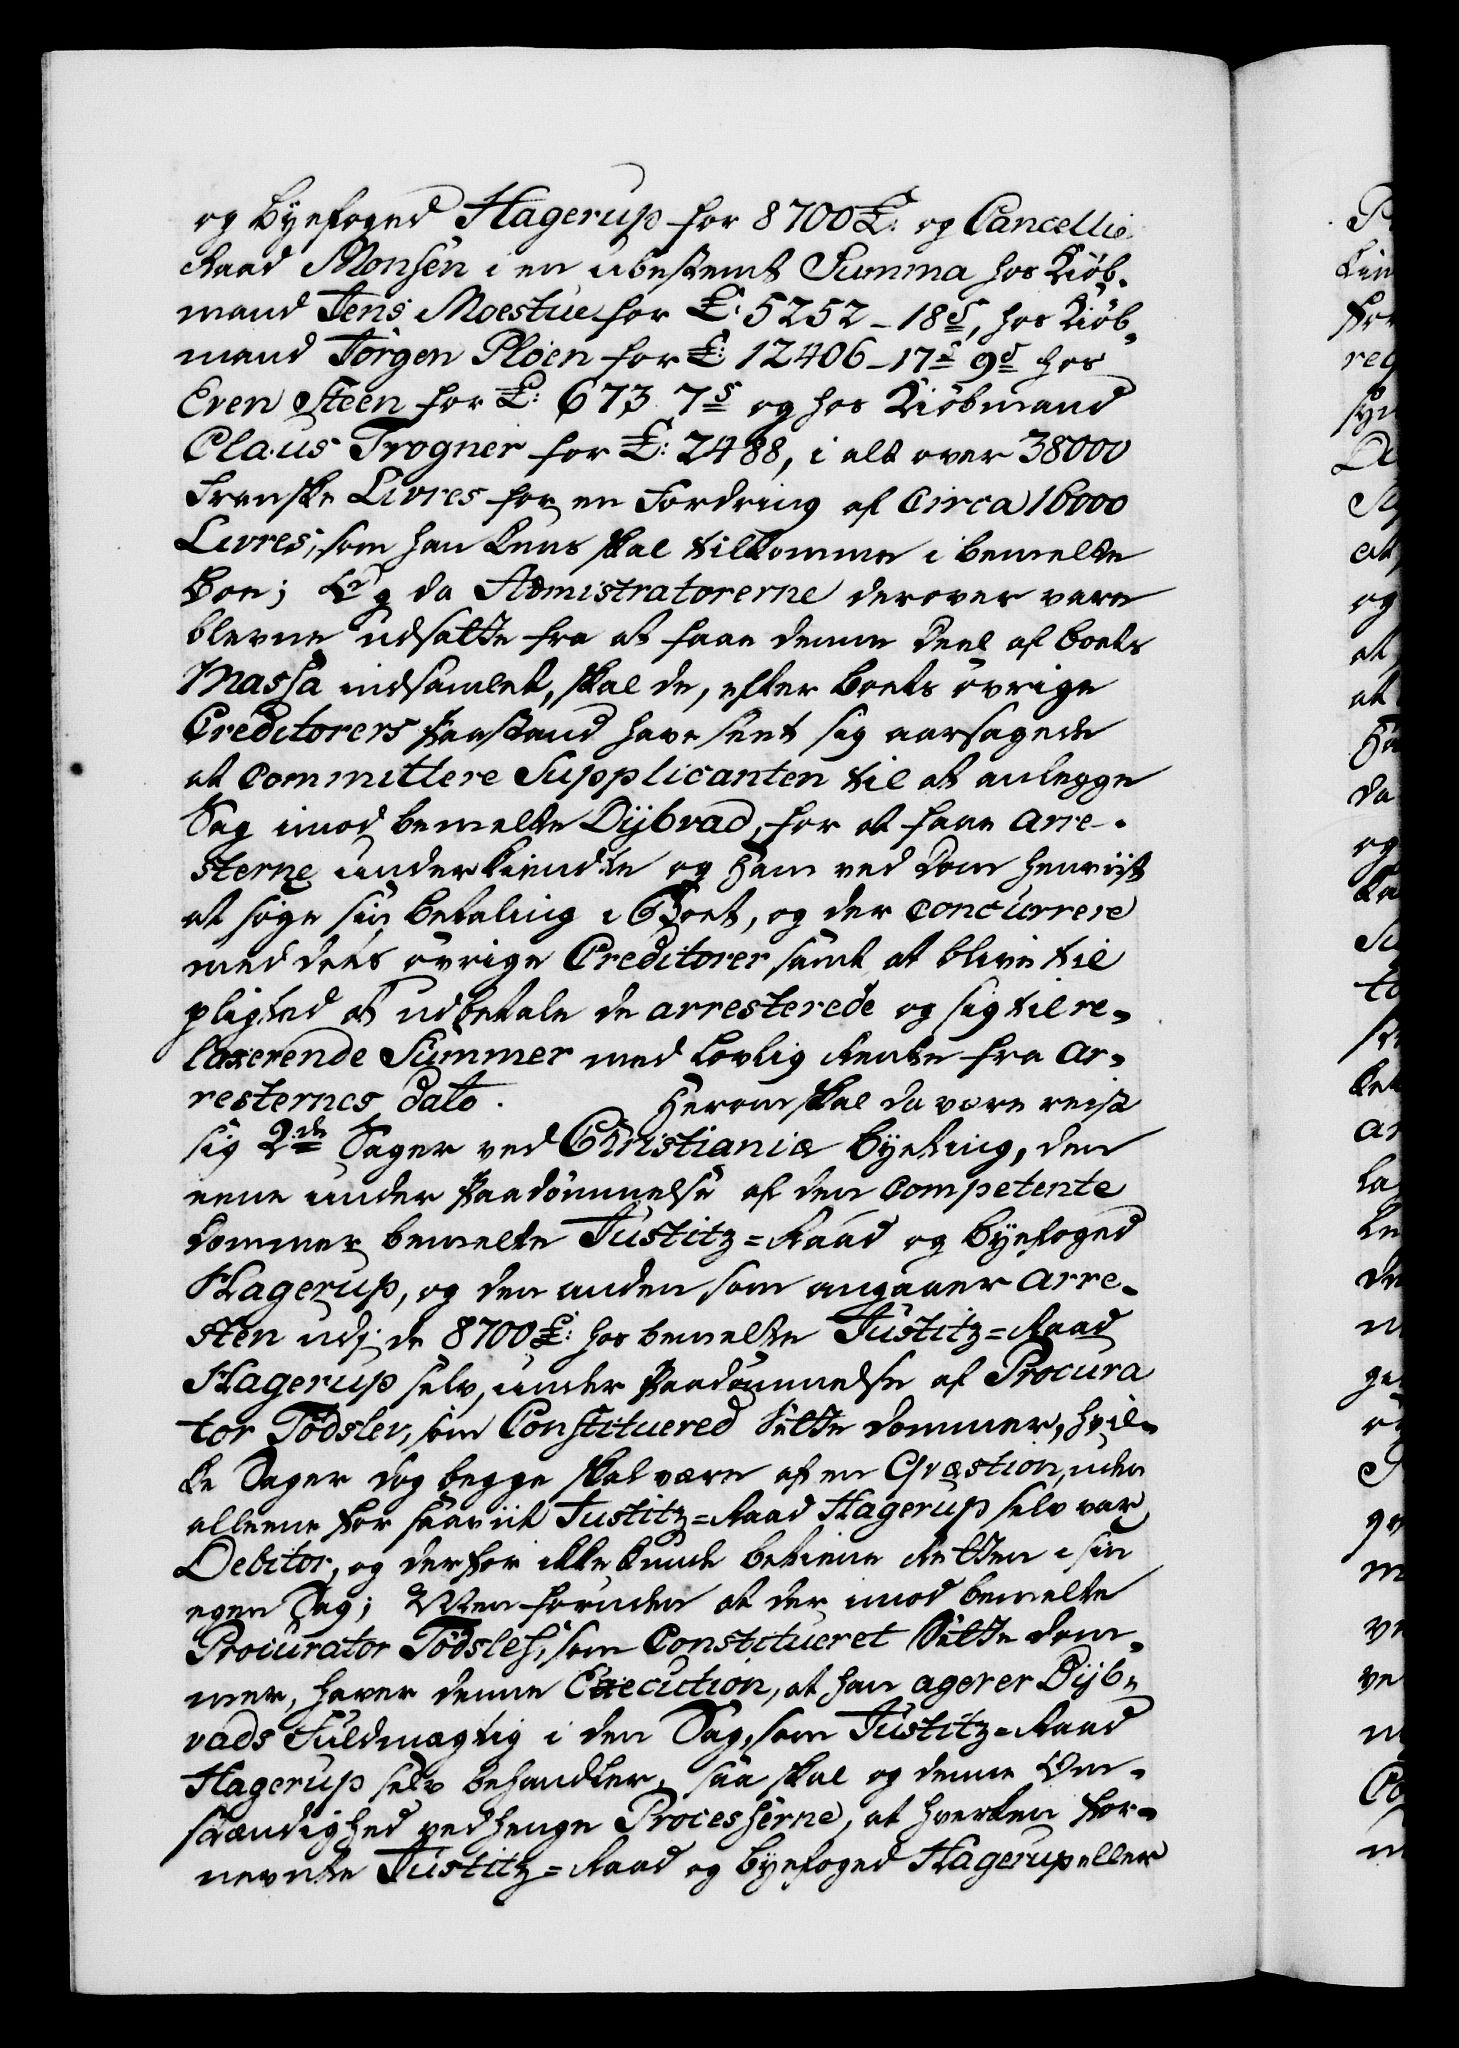 og Byefoged Hagerup for 8700 £: og Cancellie
Raad Monsen i en ubestemt Summa hos Kiöb-
mand Jens Moestue for £: 5252 - 18 s, hos Kiöb-
mand Jörgen Pløen for £: 12406 - 17 s 9 d hos
Even Steen for £: 673 7 s og hos Kiöbmand
Claus Trogner for £: 2488, i alt over 38000
Franske Livres for en Fordring af Circa 16000
Livres, som han kuns skal tilkomme i bemelte
Boe; Og da Admistratorerne derover vare
blevne udsatte fra at faae denne Deel af Boets
Massa indsamlet, skal de, efter Boets övrige
Creditorers Paastand have seet sig aarsagede
at Committere Supplicanten til at anlegge
Sag imod bemelte Dybvad, for at faae Arre-
sterne underkiendte og Ham ved Dom henviist
at søge sin betaling i Boet, og der concurrere
med dets övrige Creditorer samt at blive til
pligted at udbetale de arresterede og sig til re-
laxerende Summer med lovlig Rente fra Ar-
resternes dato. Herom skal da være reist
sig 2de Sager ved Christianiæ Byeting, den
eene under Paadömmelse af den Competente
Dommer bemelte Justitz=Raad og Byefoged
Hagerup, og den anden som angaaer Arre-
sten udj de 8700 £: hos bemelte Justitz=Raad
Hagerup selv, under Paadömmelse af Procura
tor Tödsler, som Constituered Sætte Dommer, hvil-
ke Sager dog begge skal være af en Qvæstion, uden
alleene for saaviit Justitz=Raad Hagerup selv var
Debitor, og derfor ikke kunde betiene Retten i sin
egen Sag; Men foruden at der imod bemelte
Procurator Tödsler, som Constitueret Sætte Dom-
mer, haver denne Execution, at han agerer Dyb-
vads Fuldmægtig i den Sag, som Justitz=Raad
Hagerup selv behandler, saa skal og denne Om-
stændighed vedhenge Processerne, at hverken for-
nevnte Justitz=Raad og Byefoged Hagerup eller